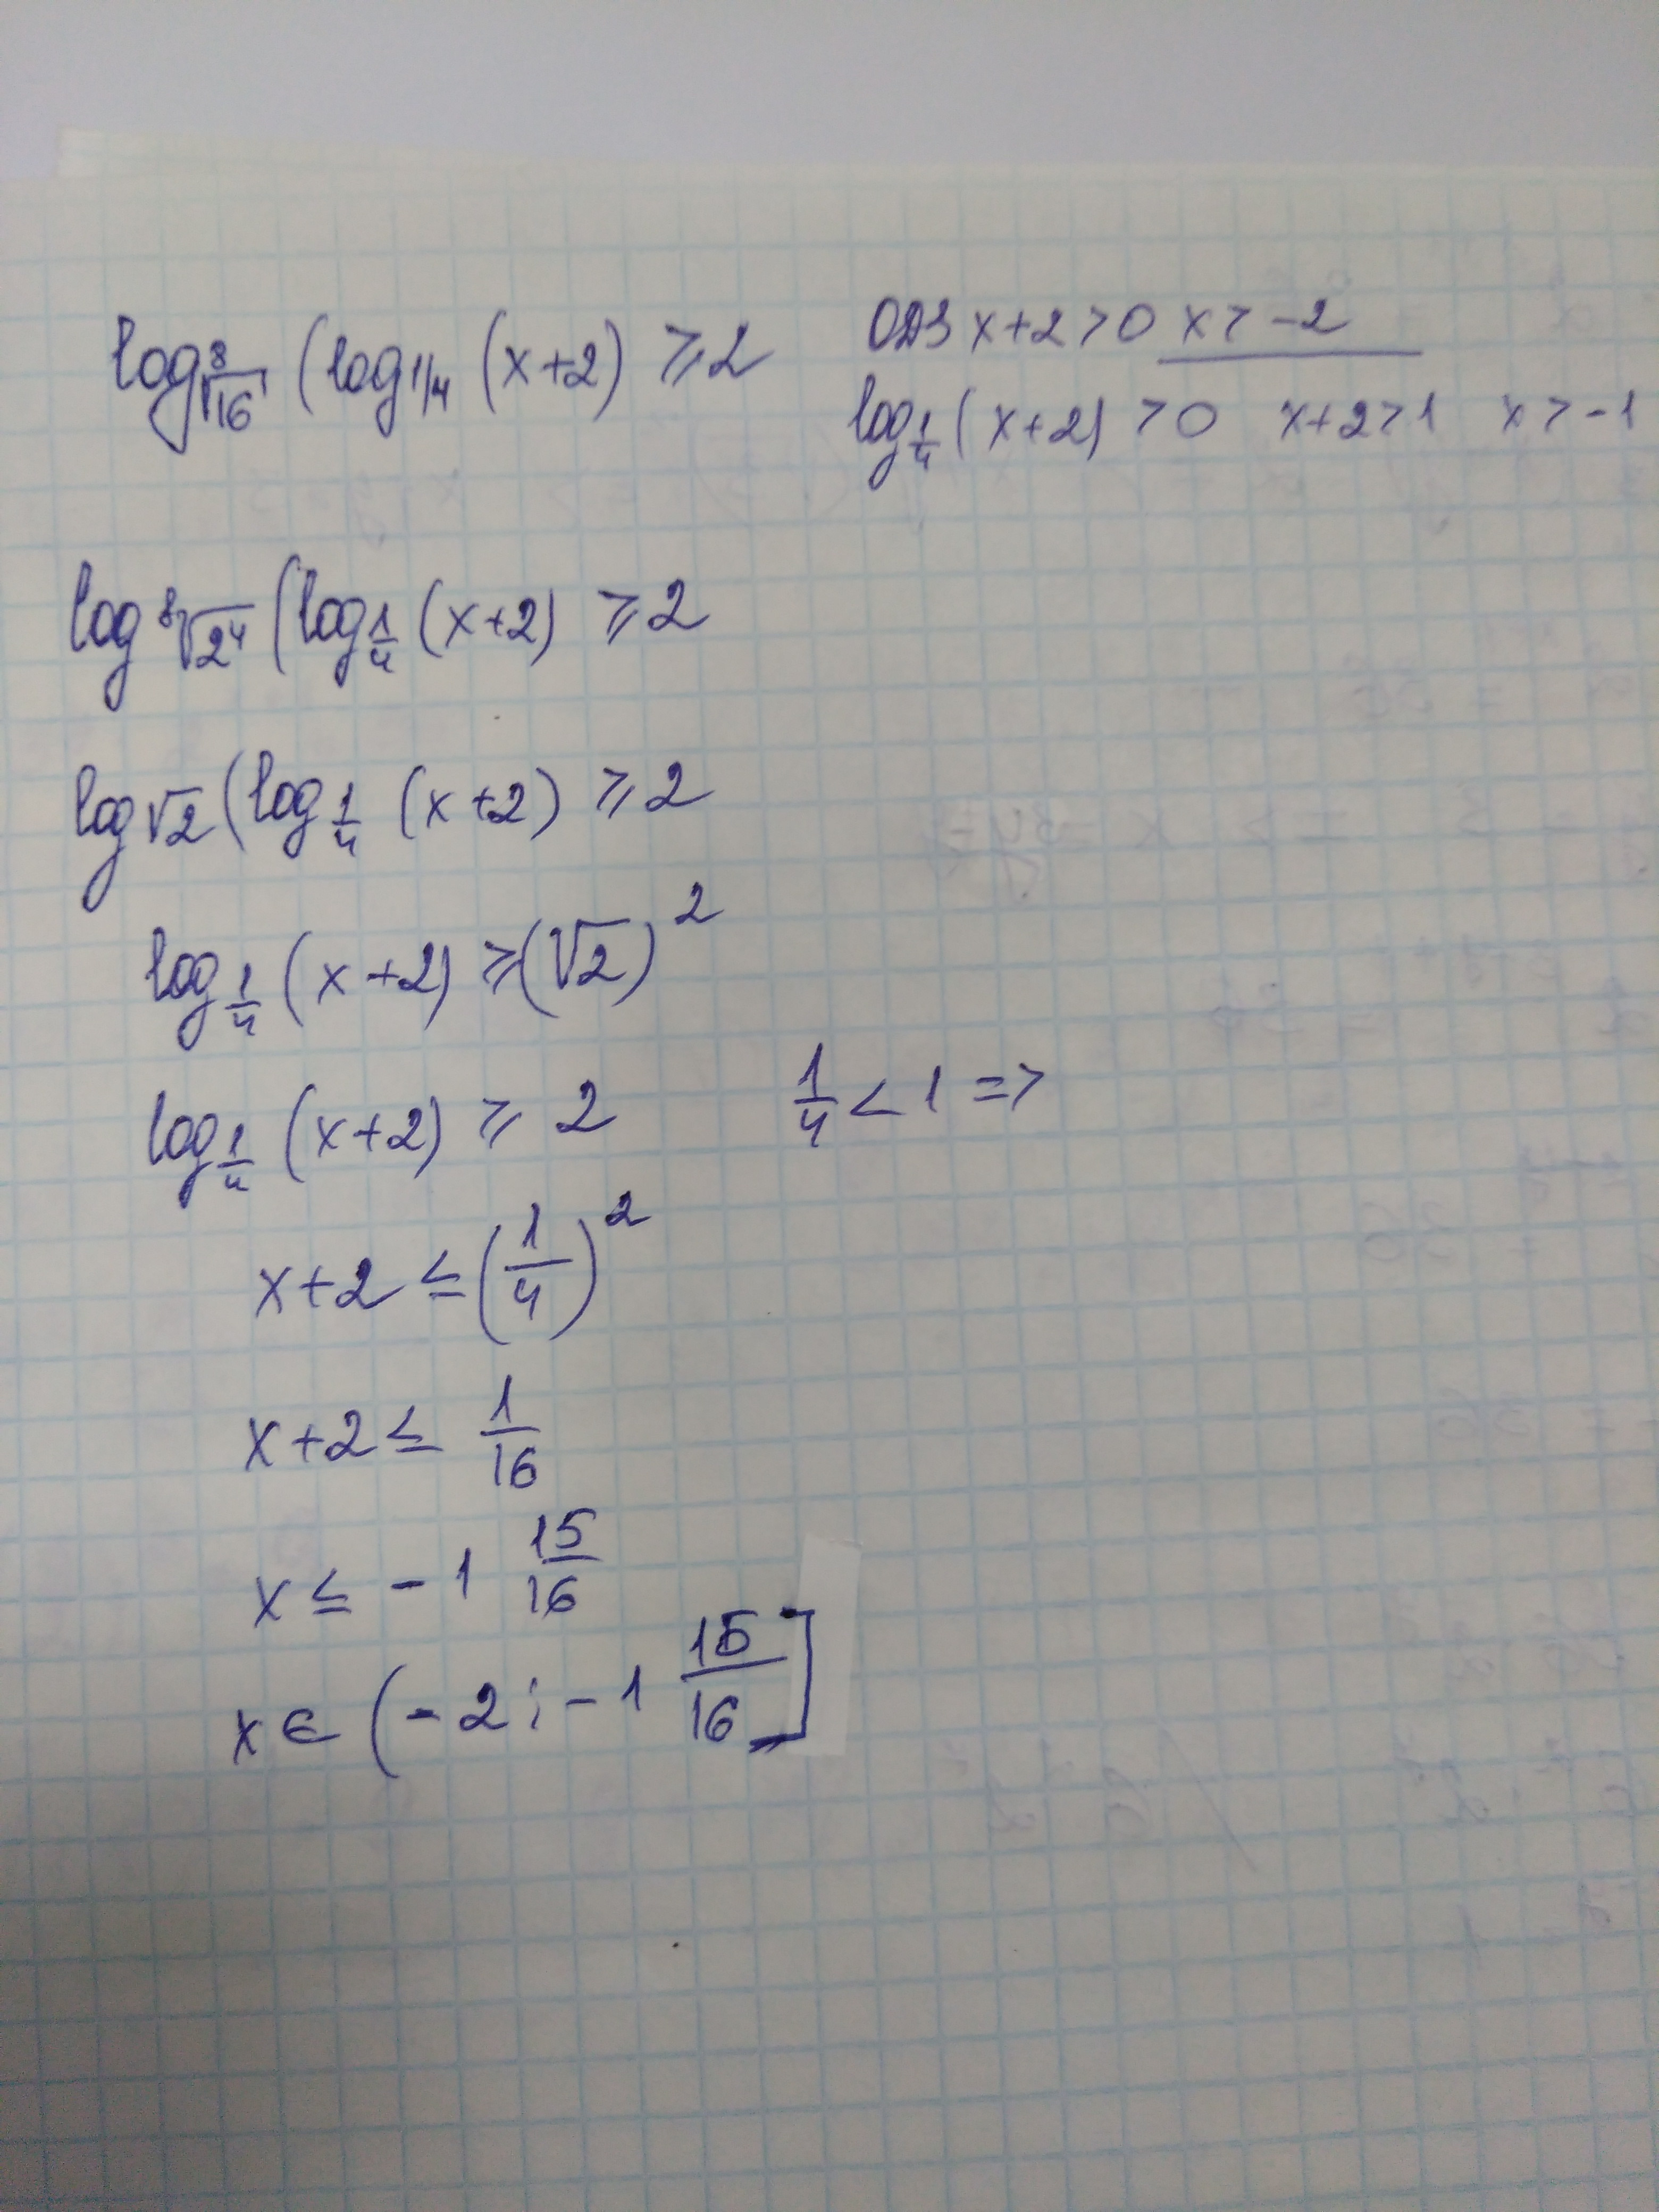 log ⁸√16 (log 1/4 (x+2) ≥ 2
ОДЗ x+2 > 0 x > -2
log 1/4 (x+2) > 0 x+2 > 1 x > -1
log ⁸√2⁴ (log 1/4 (x+2) ≥ 2
log √2 (log 1/4 (x+2) ≥ 2
log 1/4 (x+2) ≥ (√2)²
log 1/4 (x+2) ≥ 2 1/4 < 1 =>
x+2 ≤ (1/4)²
x+2 ≤ 1/16
x ≤ -1 15/16
x ∈ (-2; -1 15/16]